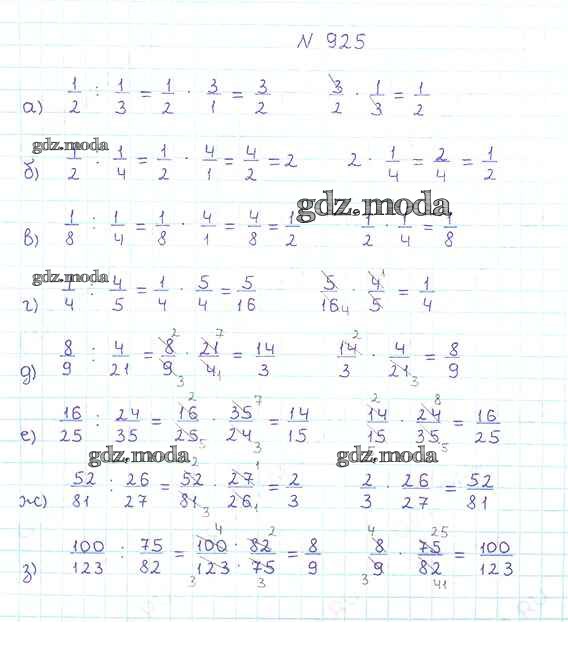 N 925
а) 1/2 : 1/3 = 1/2 · 3/1 = 3/2   3/2 · 1/3 = 1/2
gdz.moda
б) 1/2 : 1/4 = 1/2 · 4/1 = 4/2 = 2   2 · 1/4 = 2/4 = 1/2
gdz.moda
в) 1/8 : 1/4 = 1/8 · 4/1 = 4/8 = 1/2   1/2 · 1/4 = 1/8
gdz.moda
г) 1/4 : 4/5 = 1/4 · 5/4 = 5/16   5/16 4 · 4 1/5 = 1/4
д) 8/9 : 4/21 = 8 2/9 3 · 21 7/4 1 = 14/3   14 2/3 · 4/21 3 = 8/9
е) 16/25 : 24/35 = 16 2/25 5 · 35 7/24 3 = 14/15   14 2/15 · 24 8/35 5 = 16/25
gdz.moda gdz.moda
ж) 52/81 : 26/27 = 52 2/81 3 · 27 1/26 1 = 2/3   2/3 · 26/27 = 52/81
з) 100/123 : 75/82 = 100 4 · 82 2/123 3 · 75 3 = 8/9   8 4/9 3 · 75 25/82 41 = 100/123